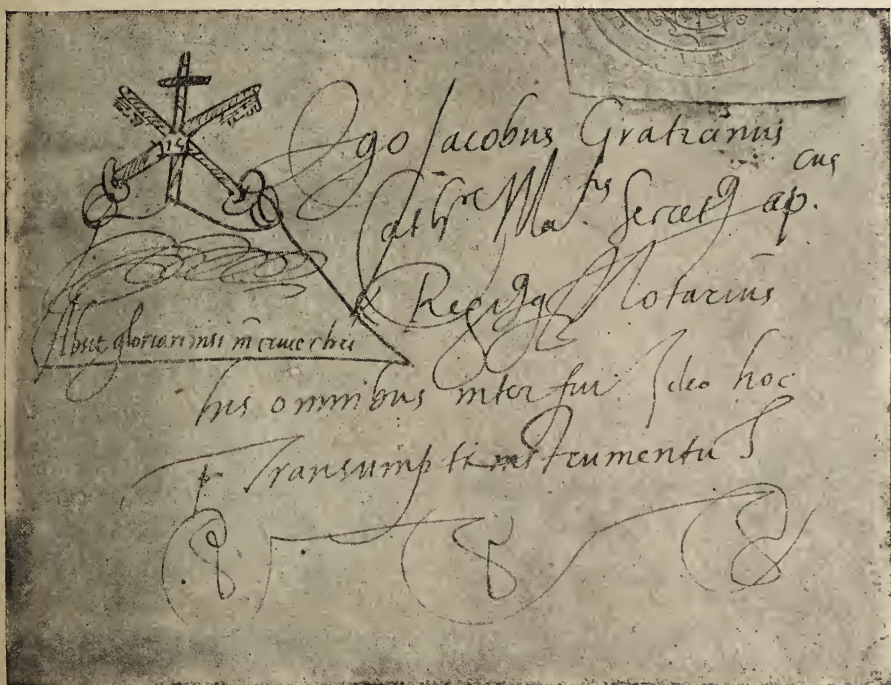 Ego Jacobus Gratianus
Cath^re Ma^tis Secret^9 ap.^cus
Regi9q Notarius
Absit gloriari nisi in cruce
his omnibus interfui Ideo hoc
Transumpti instrumentū